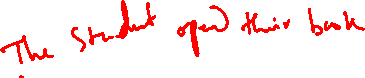 The Student open their book